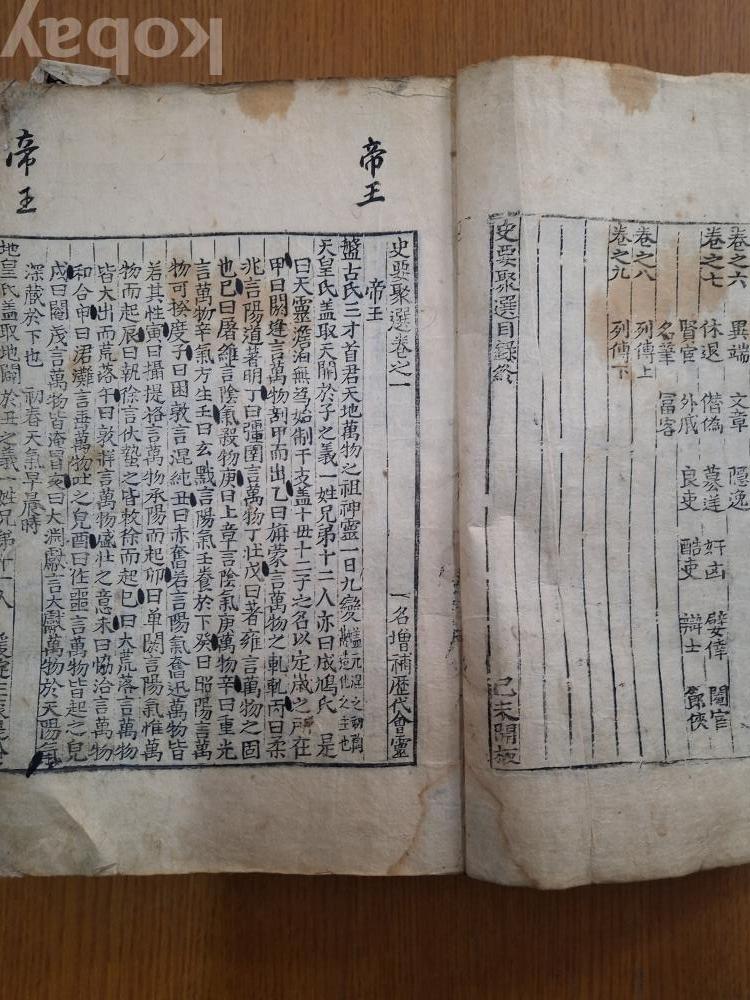 kobay
卷之六 異端 文章 隱逸
卷之七 休退 僭偽 篡逆 奸凶 嬖倖 閹官
賢宦 外戚 良吏 酷吏 辯士 節俠
名筆 富客
卷之八 列傳上
卷之九 列傳下
史要聚選目錄終 己未開板
帝王
史要聚選卷之一 一名增補歷代會靈
帝王
盤古氏三才首君天地萬物之祖神靈一日九變
天皇氏盖取天開於子之義一姓兄弟十二人亦曰成鳩氏 是
曰天靈澹泊無為始制干支盖十母十二子之名以定歲之所在
甲曰閼逢言萬物剖甲而出乙曰旃蒙言萬物之軋軋丙曰柔
兆言陽道著明丁曰彊圉言萬物丁壯戊曰著雍言萬物之固
也己曰屠維言陰氣殺物庚曰上章言陰氣庚萬物辛曰重光
言萬物辛氣方生壬曰玄黓言陽氣壬養於下癸曰昭陽言萬
物可揆度子曰困敦言混沌丑曰赤奮若言陽氣奮迅萬物皆
若其性寅曰攝提格言萬物承陽而起卯曰单閼言陽氣惟萬
物而起辰曰執徐言伏蟄之皆敕徐而起巳曰大荒落言萬物
皆大出而荒落午曰敦牂言萬物盛壯之意未曰協洽言萬物
和合申曰涒灘言垂萬物吐之皃酉曰作噩言萬物皆起之皃
戌曰閹茂言萬物皆淹冒亥曰大淵獻言大獻萬物於天陽氣
深藏於下也 初春天氣早晨時
地皇氏盖取地闢於丑之義一姓兄弟十一人
帝王